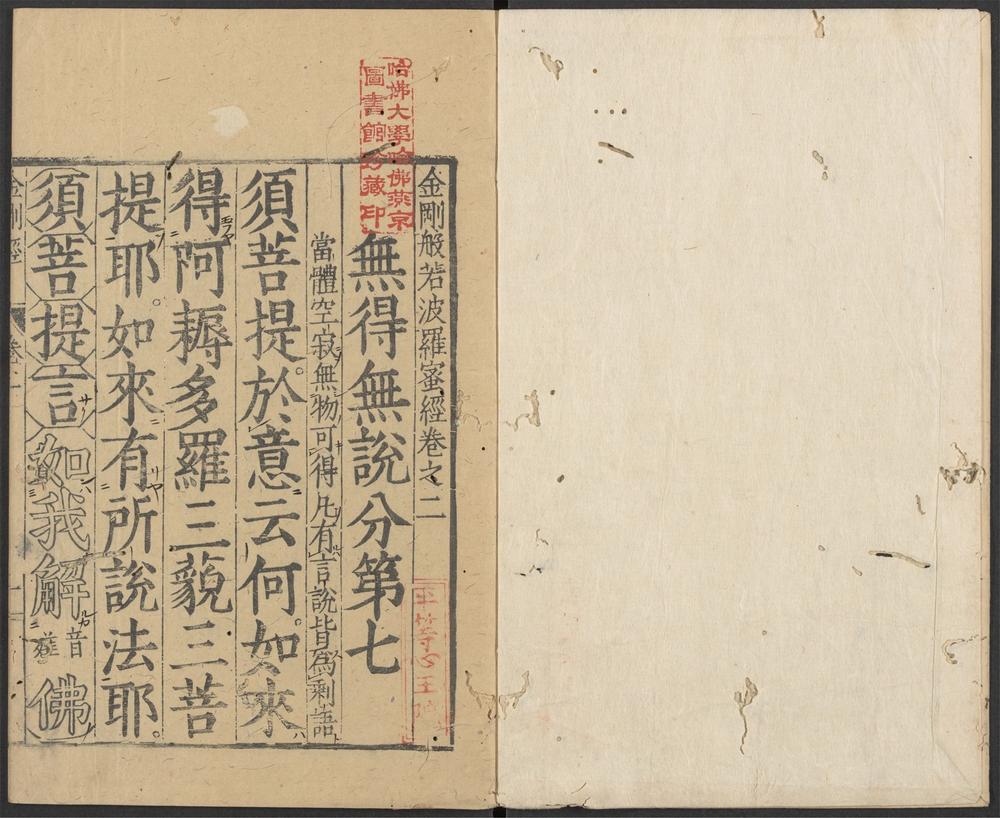 金剛般若波羅蜜經卷之二
哈佛大學哈佛燕京
圖書館珍藏印
平等心王院
無得無說分第七
當體空寂無物可得凡有言說皆為剩語
須菩提。於意云何。如來
得阿耨多羅三藐三菩
提耶。如來有所說法耶。
須菩提言如我解音蓰佛
金剛經 卷二